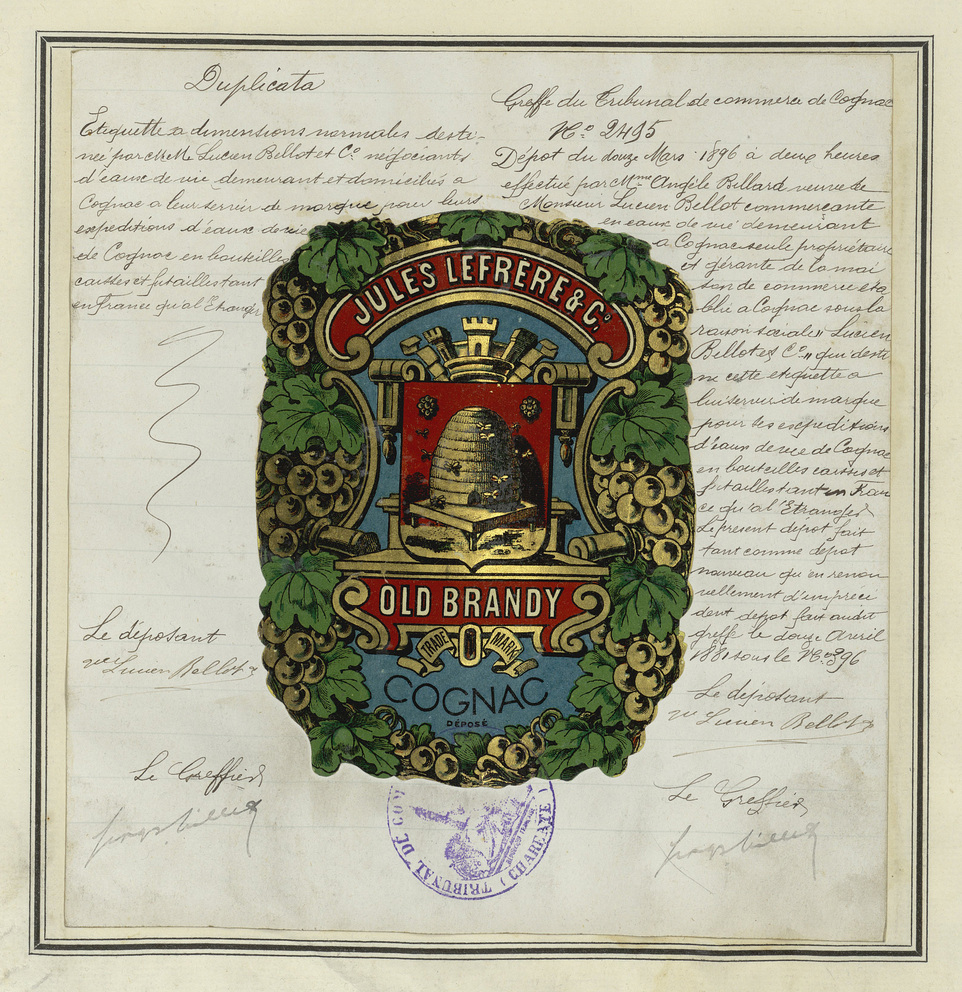 Duplicata
Étiquette a dimensions normales desti-
née par MM. Lucien Bellot et Cº négociants
d'eaux de vie demeurant et domiciliés a
Cognac a leur servir de marque pour leurs
expeditions d'eaux de vie
de Cognac en bouteilles
caisses et futailles tant
en France qu'al'Etranger
Le déposant
vve Lucien Bellot
Le Greffier
Greffe du Tribunal de commerce de Cognac
Nº 2495
Dépot du douze Mars 1896 à deux heures
effectué par Mme Angèle Billard veuve de
Monsieur Lucien Bellot commerçante
en eaux de vie demeurant
a Cognac seule propriétaire
et gérante de la mai
son de commerce éta
blie a Cognac sous la
raison sociale " Lucien
Bellot et Cº " qui desti
ne cette etiquette a
lui servir de marque
pour ses expeditions
d'eaux de vie de Cognac
en bouteilles caisses et
futailles tant en Fran
ce qu'al'Etranger
Le present depot fait
tant comme depot
nouveau qu'en renou
vellement d'un préce
dent depot fait audit
greffe le douze Avril
1881 sous le Nº 396
Le déposant
vve Lucien Bellot
Le Greffier
JULES LEFRÈRE & Cº
OLD BRANDY
TRADE MARK
COGNAC
DÉPOSÉ
TRIBUNAL DE COM
(CHARENTE)